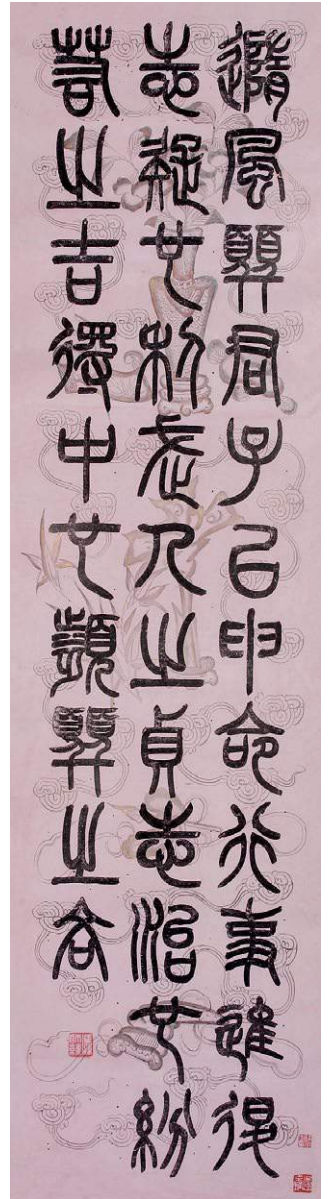 隨風顨君子以申命行事進退
志疑也利武人之貞志治也紛
若之吉得中也頻顨之吝